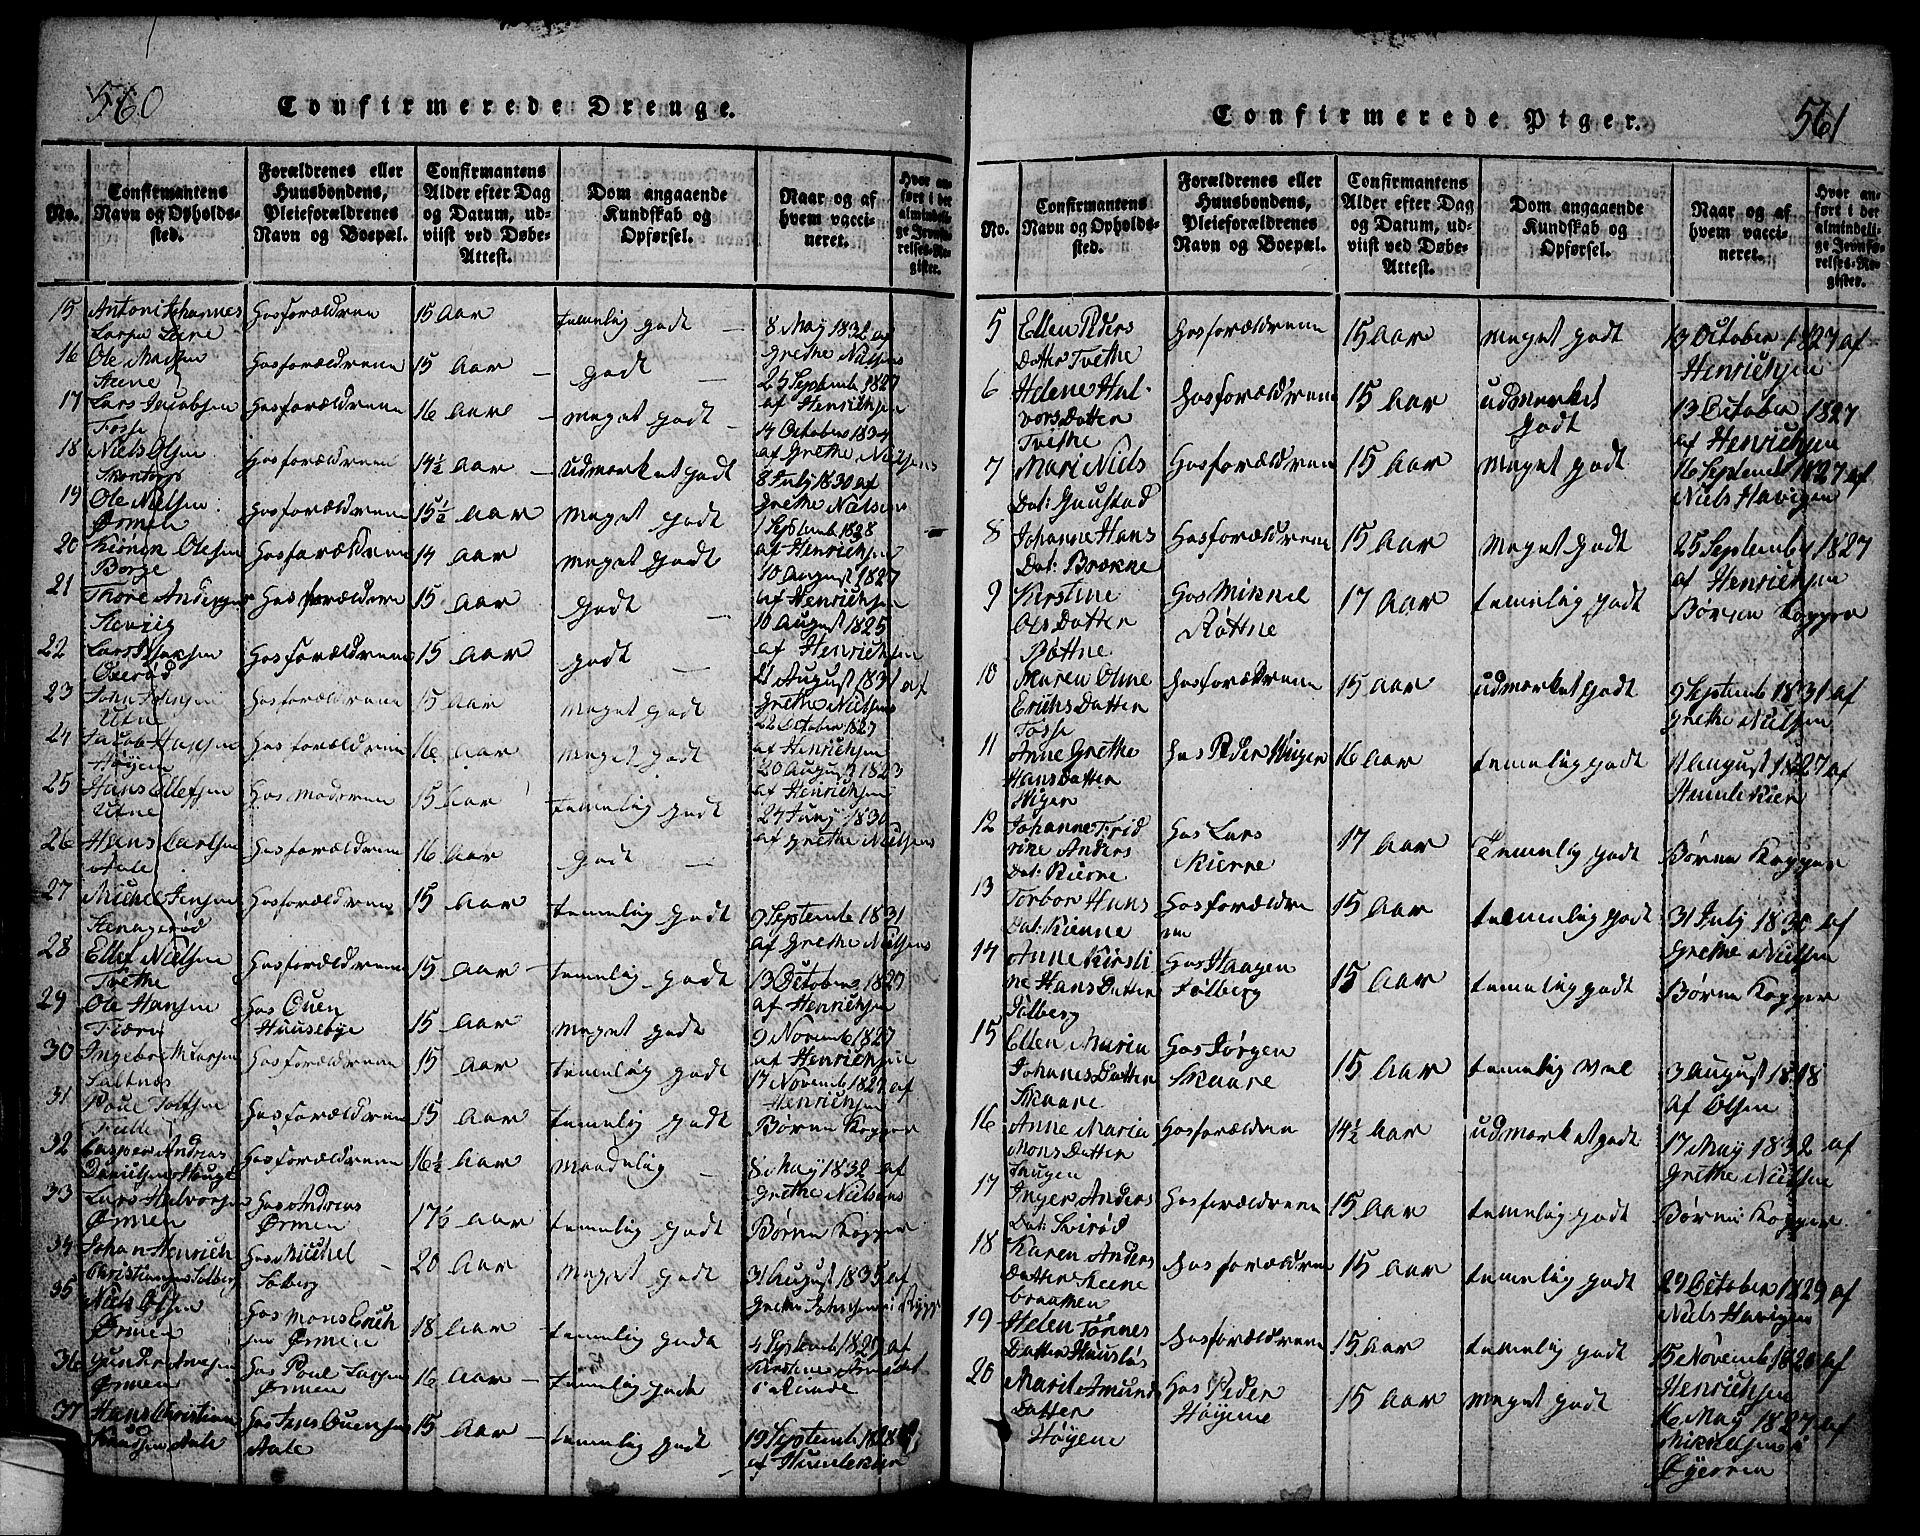 560
Confirmerede Drenge.
No.
Confirmantens Navn og Opholdssted.
Forældrenes eller Huusbondens, Pleieforældrenes Navn og Boepæl.
Confirmantens Alder efter Dag og Datum, udviist ved Døbe-Attest.
Dom angaaende Kundskab og Opførsel.
Naar og af hvem vaccineret.
Hvor anført i det almindelige Jevnførelses-Register.
15 Antoni Johannes Larsen hos forældrene 15 Aar temelig godt — 8 May 1832 af Grethe Nielsens
16 Ole Madsen Steene hos forældrene 15 Aar — godt — 25 Septemb 1827 af Henrichsen
17 Lars Jacobsen Fosse hos forældrene 16 Aar — meget godt — 14 October 1834 af Grethe Nielsens
18 Niels Olsen hos forældrene 14½ Aar — udmerket godt 8 July 1830 af Grethe Nielsens
19 Ole Nielsen Ørmen hos forældrene 15½ Aar meget godt 1 Septemb 1828 af Henrichsen
20 Olesen Borge hos forældrene 14 Aar meget godt 10 August 1827 af Henrichsen
21 Thore Andersen hos forældrene 15 Aar godt — 10 August 1825 af Henrichsen
22 Lars hos forældrene 15 Aar godt — 21 August 1831 af Grethe Nielsens
23 John Jensen Utne hos forældrene 15 Aar meget godt 22 October 1827 af Henrichsen
24 Jacob Hansen Høyem hos forældrene 16 Aar meget godt 20 August 1823 af Henrichsen
25 Hans Ellefsen Utne hos moderen 15 Aar temelig godt 24 Juny 1830 af Grethe Nielsens
26 Hans Carlsen Aale hos forældrene 16 Aar godt —
27 Michel Jensen hos forældrene 15 Aar temelig godt 9 Septemb 1831 af Grethe Nielsens
28 Ellef Nielsen Tvethe hos forældrene 15 Aar temelig godt 13 October 1827 af Henrichsen
29 Ole Hansen hos Ouen Huusebye 15 Aar meget godt 9 Novemb 1827 af Henrichsen
30 Ingebr M Larsen Saltnes hos forældrene 15 Aar temelig godt 17 Novemb 1827 af Henrichsen
31 Poul hos forældrene 15 Aar temelig godt Børne Kopper
32 Casper Andreas Danielsen Houge hos forældrene 16½ Aar maadelig — 8 May 1832 af Grethe Nielsens
33 Lars Halvorsen Ørmen hos Andreas Ørmen 17½ Aar temelig godt Børne Kopper
34 Johan Henrich Christiansen Solberg hos Michel Solberg — 20 Aar meget godt 31 August 1835 af Grethe
35 Niels Olsen Ørmen hos Mons Erichsen Ørmen 18 Aar temelig godt 4 Septemb 1829 af Kirstine
36 Gunder Ørmen hos Poul Larsen Ørmen 16 Aar — temelig godt
37 Hans Christian Knudsen Aale hos Jens Ouensen Aale 15 Aar — temelig godt 19 Septemb 1828 af Humlekier
561
Confirmerede Piger.
No.
Confirmantens Navn og Opholdssted.
Forældrenes eller Huusbondens, Pleieforældrenes Navn og Boepæl.
Confirmantens Alder efter Dag og Datum, udviist ved Døbe-Attest.
Dom angaaende Kundskab og Opførsel.
Naar og af hvem vaccineret.
Hvor anført i det almindelige Jevnførelses-Register.
5 Ellen Peders Datter Tvethe hos forældrene 15 Aar meget godt 13 October 1827 af Henrichsen
6 Helene Halvors Datter Tvethe hos forældrene 15 Aar udmerket godt 13 October 1827 af Henrichsen
7 Mari Niels Dat: Gaustad hos forældrene 15 Aar meget godt 16 Septemb 1827 af Niels Havigen
8 Johanne Hans Dat: Brekne hos forældrene 15 Aar meget godt 25 Septemb 1827 af Henrichsen
9 Kirstine Ols Datter Røttne hos Mikkel Røttne 17 Aar temelig godt Børne Kopper
10 Maren Oline Erichs Datter Fosse hos forældrene 15 Aar udmerket godt 9 Septemb 1831 af Grethe Nielsen
11 Anne Grethe Hans Datter Huger hos Peder Huger 16 Aar temelig godt 11 August 1827 af Humlekier
12 Johanne Anders Dat: Kierne hos Lars Kierne 17 Aar Temelig godt Børne Kopper
13 Torbor Hans Dat: Kienne hos forældrene 15 Aar temelig godt 31 July 1830 af Grethe Nielsen
14 Anne Kirstine Hans Datter Solberg hos Haagen Solberg 15 Aar temelig godt Børne Kopper
15 Ellen Maria Johanes Datter Skaare hos Jørgen Skaare 15 Aar temelig vel 3 August 1818 af Olsen
16 Anne Maria Mons Datter Haugen hos forældren 14½ Aar udmerket godt 17 May 1832 af Grethe Nielsen
17 Inger Anders Dat: hos forældrene 15 Aar temelig godt Børne Kopper
18 Karen Anders Datter Skeene braatten hos forældren 15 Aar temelig godt 29 October 1829 af Niels Havigen
19 Helen Tønnes Datter Huusløs hos forældrene 15 Aar temelig godt 15 Novemb 1820 af Henrichsen
20 Marit Amunds Datter Høyene hos Peder Høyene 15 Aar meget godt 16 May 1827 af Mikkelsen i Øyeren